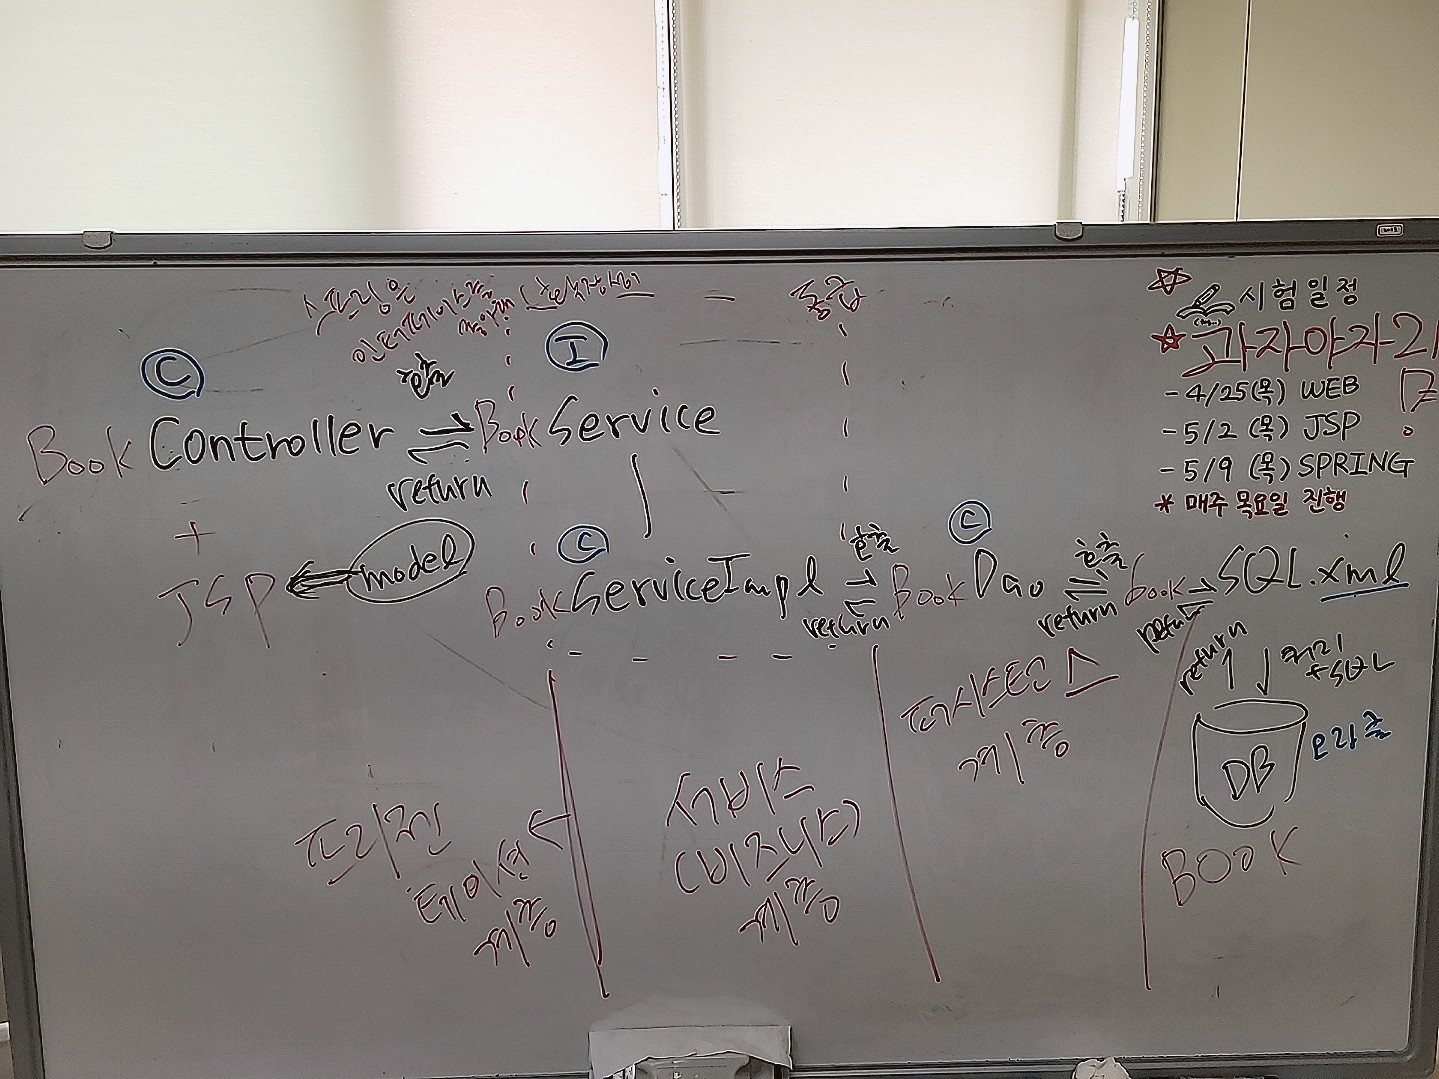 스프링은
인터페이스를
좋아해
통합
시험일정
과자야자-21
- 4/25(목) WEB
- 5/2 (목) JSP
- 5/9 (목) SPRING
* 매주 목요일 진행
C
I
호출
Book Controller
Book Service
return
+
JSP
model
C
Book ServiceImpl
호출
return
C
Book Dao
호출
return
book
return
SQL.xml
return
쿼리
+SQL
DB
오라클
BOOK
프리젠
테이션
계층
서비스
(비즈니스)
계층
퍼시스턴스
계층